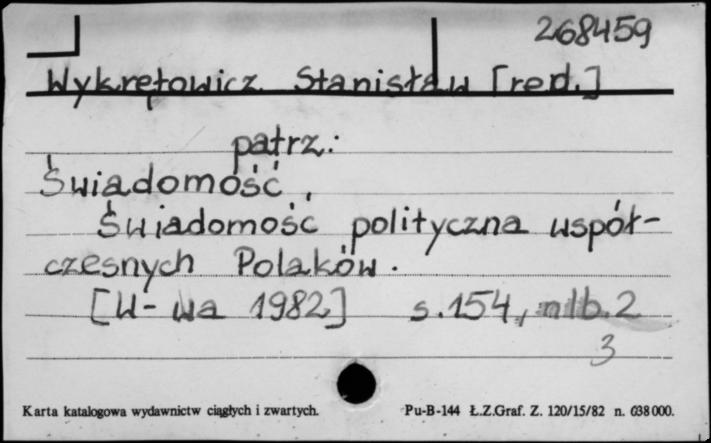 268459
Wykrętowicz Stanisław [red.]
patrz:
Świadomość.
Świadomość polityczna współ-
czesnych Polaków.
[W-wa 1982] s.154, nlb.2
3
Karta katalogowa wydawnictw ciągłych i zwartych. Pu-B-144 Ł.Z.Graf. Z. 120/15/82 n. 638000.